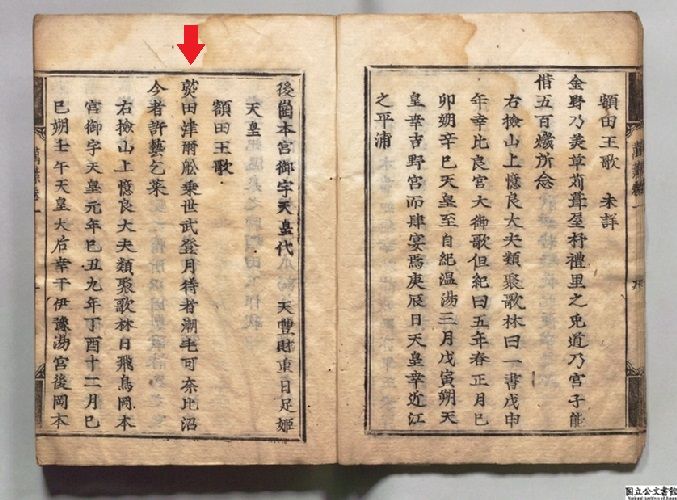 額田王歌　未詳
金野乃美草苅葺屋村禮里之兎道乃宮子能
借五百礒所念
右撿山上憶良大夫類聚歌林曰一書戊申
年幸比良宮大御歌但紀曰五年春正月己
卯朔辛巳天皇至自紀温湯三月戊寅朔天
皇幸吉野宮而肆宴焉庚辰日天皇幸近江
之平浦
後崗本宮御宇天皇代　天豊財重日足姫
天皇
額田王歌
熟田津爾舩乗世武登月待者潮毛可奈比沼
今者許藝乞菜
右撿山上憶良大夫類聚歌林曰飛鳥岡本
宮御宇天皇元年己丑九年丁酉十二月己
巳朔壬午天皇大后幸于伊豫湯宮後岡本
国立公文書館